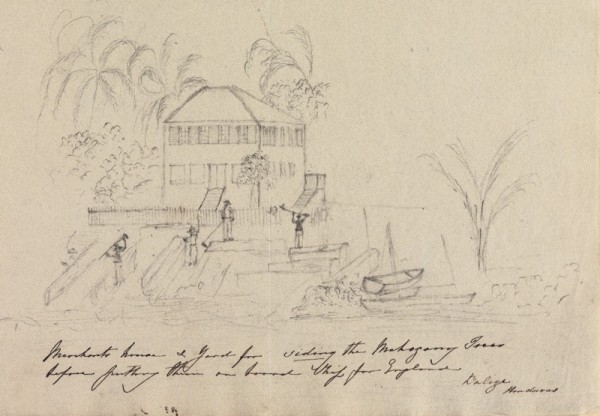 Merchants house & Yard for siding the Mahogany Trees
before putting them on board Ship for England
Balize
Honduras